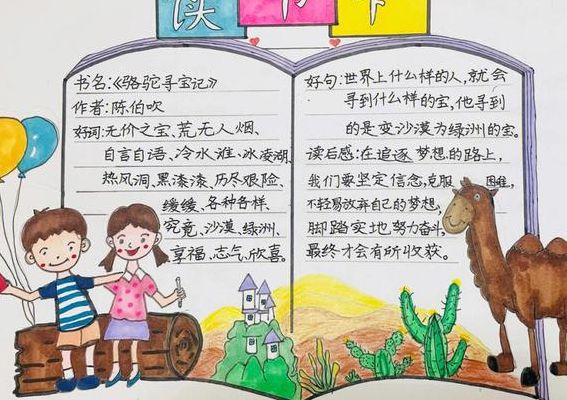 读书卡
书名:《骆驼寻宝记》
作者:陈伯吹
好词:无价之宝、荒无人烟、
自言自语、冷水滩、冰凌湖、
热风洞、黑漆漆、历尽艰险、
缓缓、各种各样、
究竟、沙漠、绿洲、
享福、志气、欣喜。
好句:世界上什么样的人,就会
寻到什么样的宝,他寻到
的是变沙漠为绿洲的宝。
读后感:在追逐梦想的路上,
我们要坚定信念,克服困难,
不轻易放弃自己的梦想,
脚踏实地,努力奋斗,
最终才会有所收获。